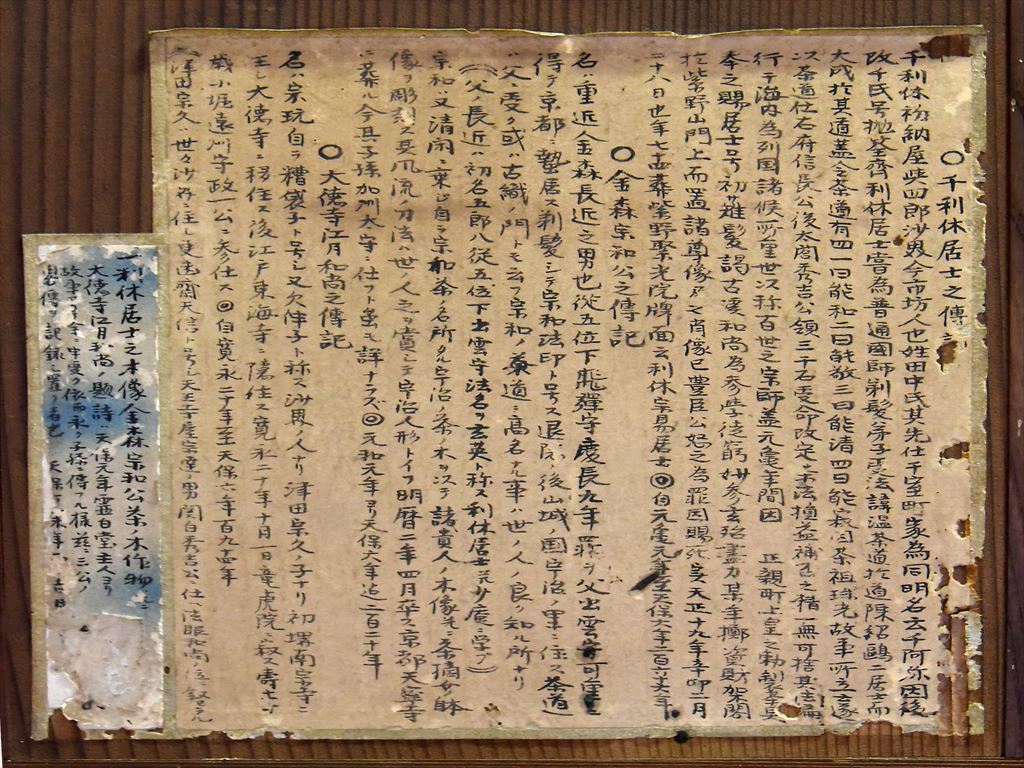 〇千利休居士之傳
千利休初納屋与四郎沙界今市坊人也姓田中氏其先仕于室町家為同朋名云千阿弥因後
改千氏号抛筌斎利休居士嘗為普通國師剃髪弟子受法諱温茶道於道陳紹鷗二居士而
大成於其道蓋之茶道有四一曰能和二曰能敬三曰能清四曰能寂因茶祖珠光故事所立遂
以茶道仕右府信長公後太閤秀吉公領三千石受命改定古法損益補 之精一無可捨其法
行于海内為列国諸侯所重世以称百世之宗師蓋元亀年間因 正親町上皇之勅
奉之賜居士号初難髪謁古渓和尚為参学徒窮妙参玄殆盡力某年擲資財架閣
於紫野山門上而置諸尊像及己肖像已豊臣公怒之為罪因賜死実天正十九年辛卯二月
二十八日也年七十葬紫野聚光院牌面云利休宗易居士◎自元亀元年至天保六年二百六十六年
〇金森宗和公之傳記
名ハ重近金森長近之男也従五位下飛騨守慶長九年罪ヲ父出雲守可重
得テ京都ニ蟄居ス剃髪シテ宗和法印ト号ス退隠ノ後山城ノ国宇治ノ里ニ住ス茶道
ハ父ニ受ク或ハ古織ノ門トモ云フ宗和ノ茶道ニ高名ナル事ハ世ノ人ノ良ク知ル所ナリ
（父ノ長近ハ初名五郎八従五位下出雲守法名ヲ玄英ト称ス利休居士元少庵ニ学ブ）
宗和又清閑ニ棄シ自ラ宗和茶ノ名所タル宇治ノ茶ノ木ヲ以テ諸貴人ノ木像并ニ茶摘女ノ躰
像ヲ彫刻ス其風流ノ刀法ハ世人之ヲ賞シテ宇治人形トイフ明暦二年四月卒ス京都天寧寺
ニ葬ル今其子孫加州太守ニ仕フト虽モ詳ナラズ◎元和元年ヨリ天保六年迄二百二十年
〇大徳寺江月和尚之傳記
名ハ宗玩自ラ糟袋子ト号シ又欠伸子ト称ス沙界ノ人ナリ津田宗久ノ子ナリ初堺南宗寺ニ
主シ大徳寺ニ移住ス後江戸東海寺ニ隠住ス寛永二十年十月一日竜虎院ニ寂ス壽七十
歳小堀遠州守政一公ニ参仕ス◎自寛永二十年至天保六年百九十四年
（津田宗久ハ世々沙界ニ住シ更幽齋天信ト号シ天王寺屋宗達ノ男関白秀吉公ニ仕ヘ法眼
一利休居士之木像金森宗和公茶ノ木作物ニ
大徳寺江月和尚ノ題詩ハ天保元年霊白堂主人ヨリ
故事アリ今ニ申受ク依而永ク子孫ニ傳フル様茲ニ三公ノ
畧傳ヲ記録シ置ク者也 天保六未年